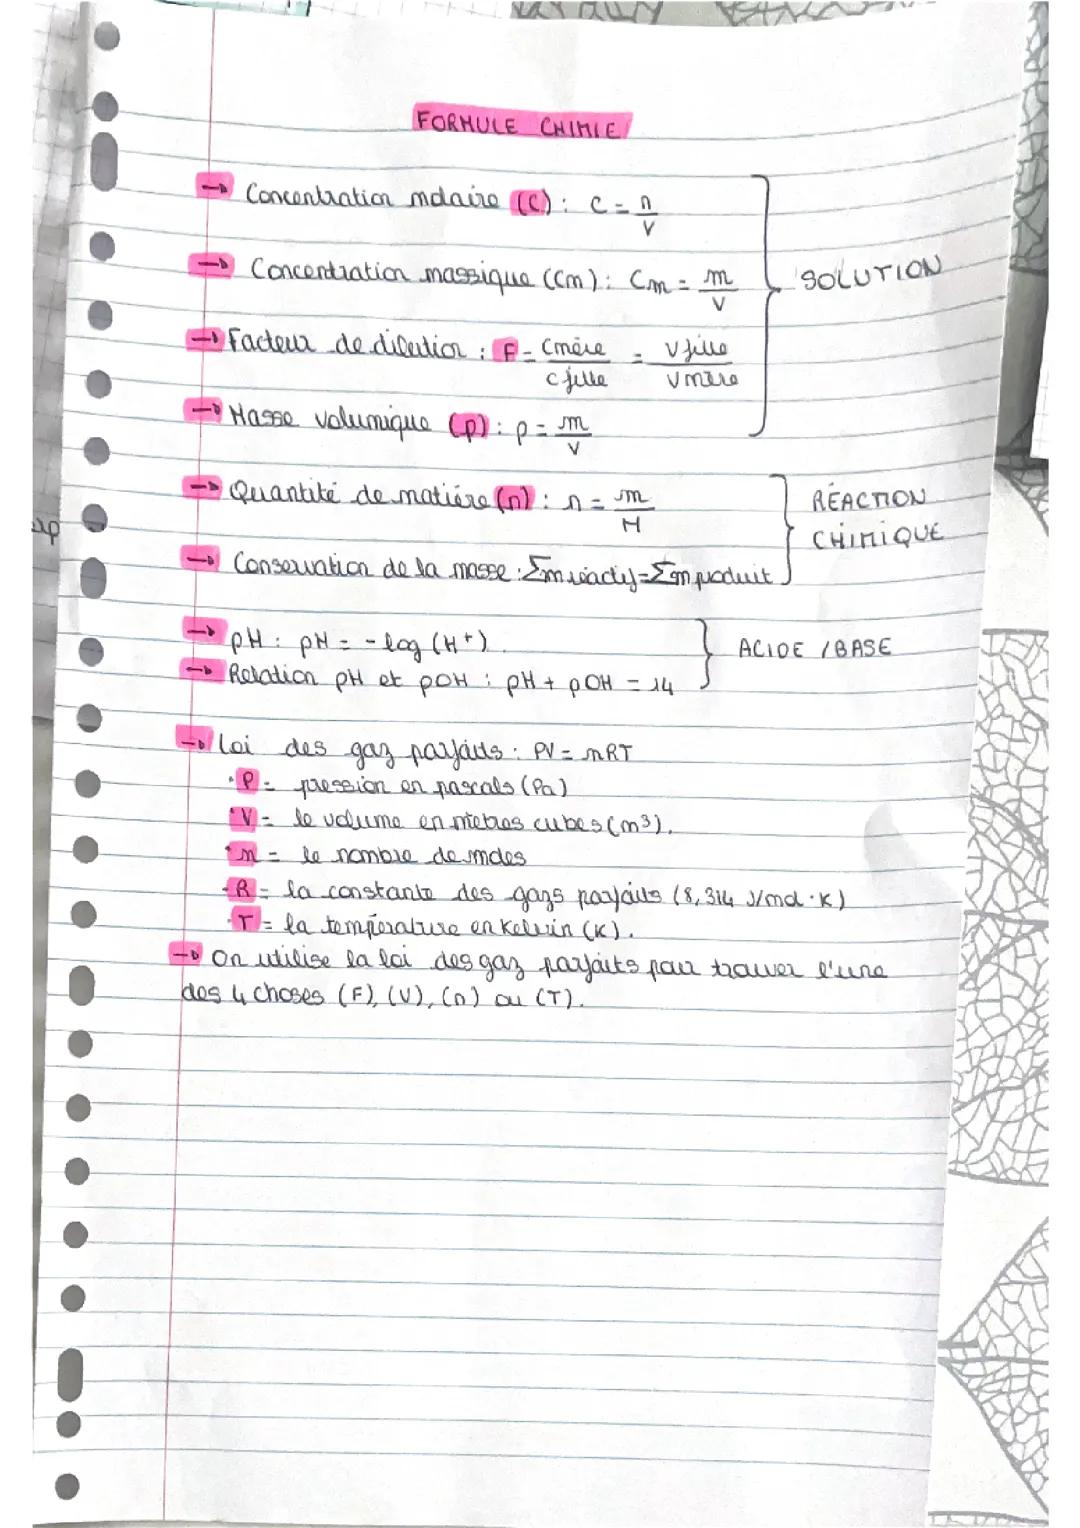 FORMULE CHIMIE
→ Concentration molaire (C) : C = n/V
→ Concentration massique (Cm) : Cm = m/V
SOLUTION
→ Facteur de dilution : F = Cmère/Cfille = Vfille/Vmère
→ Masse volumique (ρ) : ρ = m/V
→ Quantité de matière (n) : n = m/M
RÉACTION
CHIMIQUE
→ Conservation de la masse : Σm réactif = Σm produit
→ pH : pH = -log (H⁺).
ACIDE / BASE
→ Relation pH et pOH : pH + pOH = 14
→ Loi des gaz parfaits : PV = nRT
· P = pression en pascals (Pa)
· V = le volume en mètres cubes (m³).
· n = le nombre de moles
· R = la constante des gazs parfaits (8,314 J/mol·K)
· T = la température en Kelvin (K).
→ On utilise la loi des gaz parfaits pour trouver l'une
des 4 choses (F), (V), (n) ou (T).